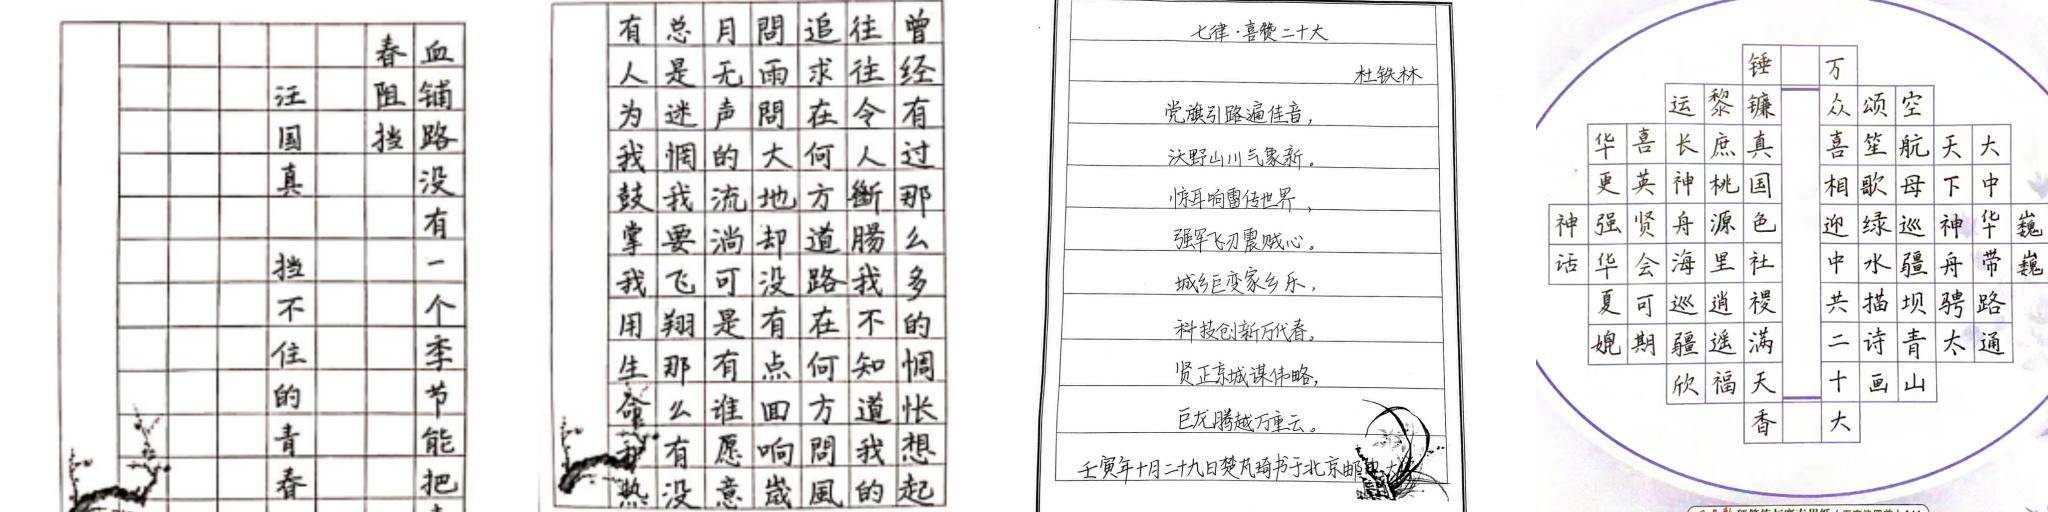 血铺路没有一个季节能把
春阻挡
汪国真 挡不住的青春
曾经有过那么多的惆怅想起
往往令人斷腸我不知道我的
追求在何方道路在何方問風
問雨問大地却没有点回响崴
月无声的流淌可是有谁愿意
总是迷惘我要飞翔那么有没
有人为我鼓掌我用生命热
七律·喜赞二十大
杜铁林
党旗引路遍佳音，
沃野山川气象新。
惊耳响雷传世界，
强军飞刃震贼心。
城乡巨变家乡乐，
科技创新万代春。
贤正京城谋伟略，
巨龙腾越万重云。
壬寅年十月二十九日琦书于北京邮电大
巍巍
大中华带路通
天下神舟骋太
空航母巡疆坝青山
颂笙歌绿水描诗画
万众喜相迎中共二十大
锤镰真国色社稷满天香
黎庶桃源里逍遥福
运长神舟海巡疆欣
喜英贤会可期
华更强华夏媲
神话